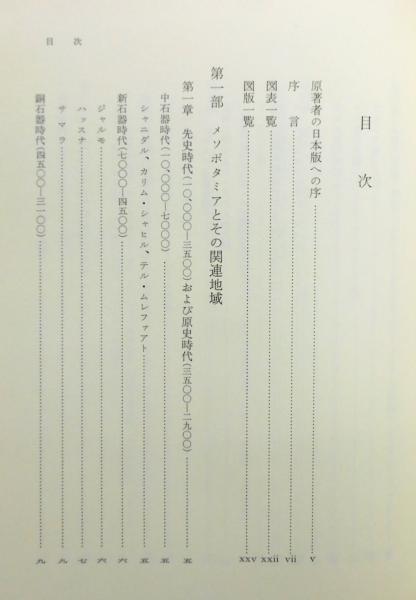 目次
目次
原著者の日本版への序……v
序言……vii
図表一覧……xxii
図版一覧……xxv
第一部 メソポタミアとその関連地域
第一章 先史時代(一〇、〇〇〇―三五〇〇)および原史時代(三五〇〇―二九〇〇)……五
中石器時代(一〇、〇〇〇―七〇〇〇)……五
シャニダル、カリム・シャヒル、テル・ムレファアト……五
新石器時代(七〇〇〇―四五〇〇)……六
ジャルモ……六
ハッスナ……七
サマラ……八
銅石器時代(四五〇〇―三一〇〇)……九